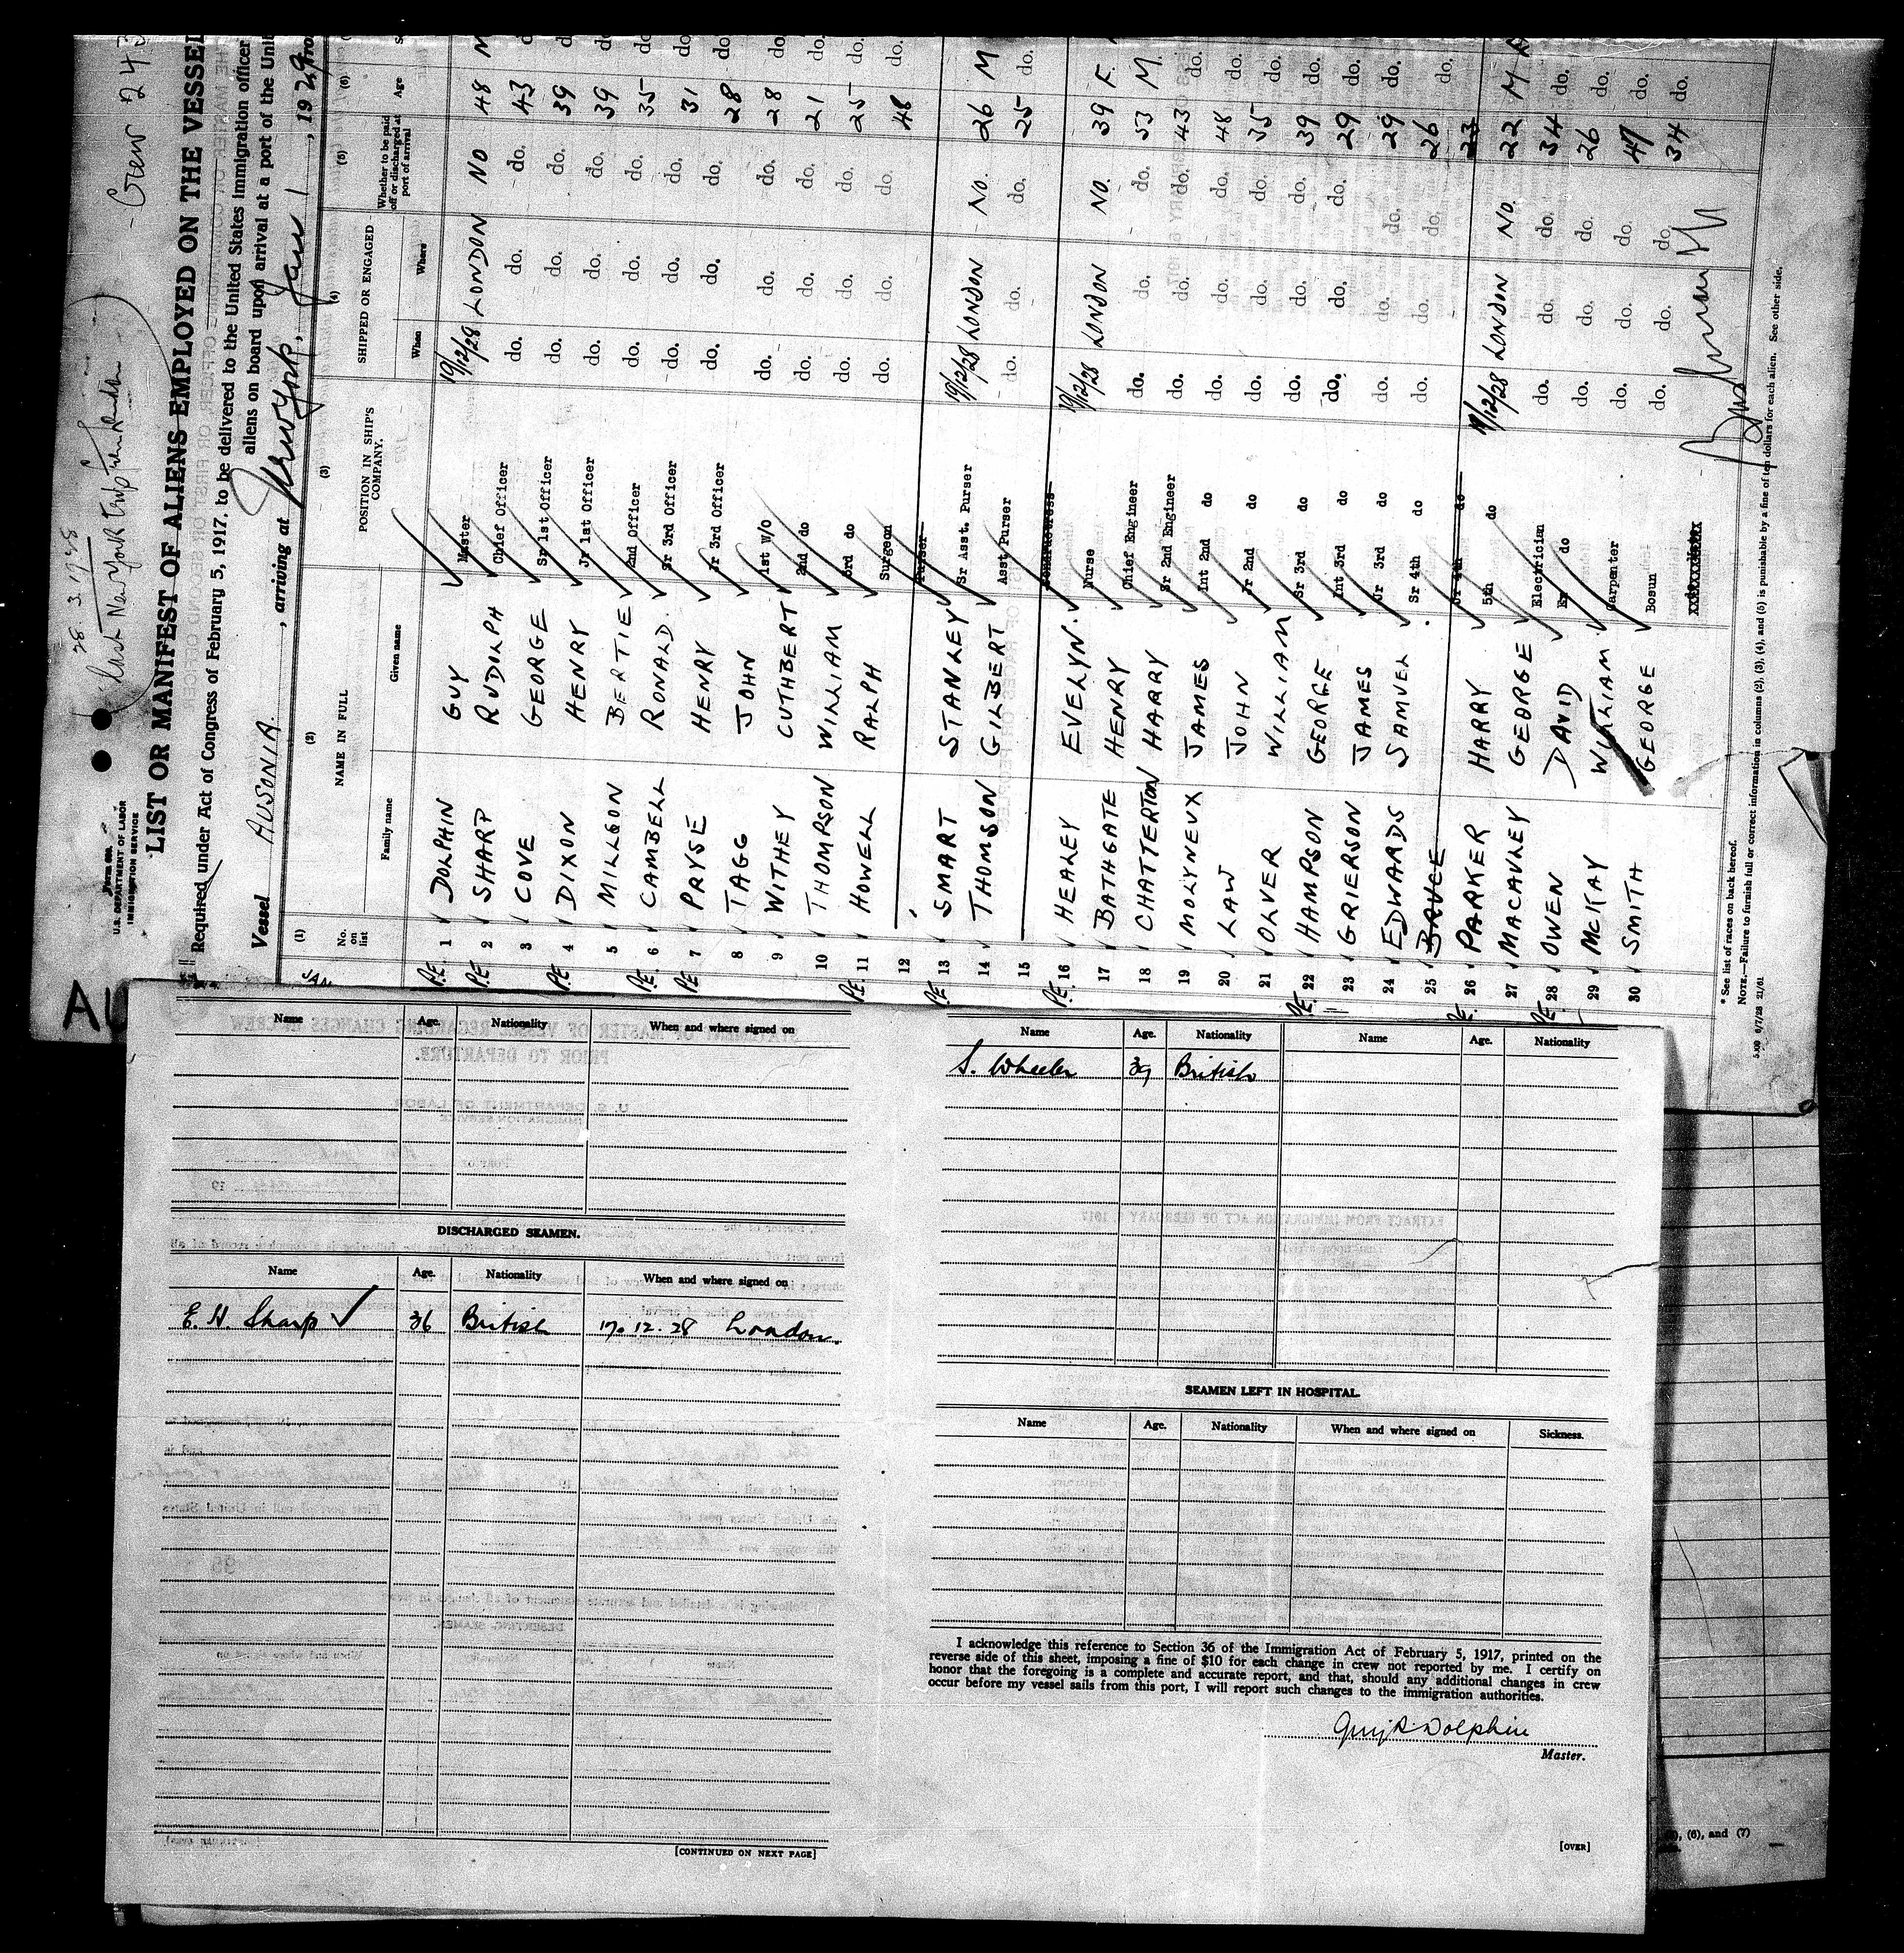 28.3.1928
last New York trip from London
Crew 243
Form 689.
U.S. DEPARTMENT OF LABOR
IMMIGRATION SERVICE
LIST OR MANIFEST OF ALIENS EMPLOYED ON THE VESSEL
Required under Act of Congress of February 5, 1917, to be delivered to the United States immigration officer
aliens on board upon arrival at a port of the Unit
Vessel AUSONIA. , arriving at New York, Jan 1 , 1929, fro
(1) (2) (3) (4) (5) (6)
No. on list NAME IN FULL POSITION IN SHIP'S COMPANY. SHIPPED OR ENGAGED Whether to be paid off or discharged at port of arrival Age
Family name Given name When Where
P.E. 1 DOLPHIN GUY Master 19/12/28 LONDON NO 48 M
P.E. 2 SHARP RUDOLPH Chief Officer do. do. do. 43 do
3 COVE GEORGE Sr 1st Officer do. do. do. 39 do
P.E. 4 DIXON HENRY Jr 1st Officer do. do. do. 39 do
5 MILLSON BERTIE 2nd Officer do. do. do. 35 do
P.E. 6 CAMBELL RONALD. Sr 3rd Officer do. do. do. 31 do
P.E. 7 PRYSE HENRY Jr 3rd Officer do. do. do. 28 do
8 TAGG JOHN 1st W/O do. do. do. 28 do
9 WITHEY CUTHBERT 2nd do do. do. do. 21 do.
10 THOMPSON WILLIAM 3rd do do. do. do. 25 do.
P.E. 11 HOWELL RALPH Surgeon do. do. do. 48 do.
12 Purser
P.E. 13 SMART STANLEY Sr Asst. Purser 19/12/28 LONDON NO. 26 M
14 THOMSON GILBERT Asst Purser do. do. do. 25 do.
15 Conductress
P.E. 16 HEALEY EVELYN. Nurse 19/12/28 LONDON NO. 39 F.
17 BATHGATE HENRY Chief Engineer do. do. do. 53 M.
18 CHATTERTON HARRY Sr 2nd Engineer do. do. do. 43 do.
19 MOLYNEUX JAMES Int 2nd do do. do. do. 48 do.
20 LAW JOHN Jr 2nd do do. do. do. 35 do.
21 OLVER WILLIAM Sr 3rd do do. do. do. 39 do.
P.E. 22 HAMPSON GEORGE Int 3rd do do. do. do. 29 do.
23 GRIERSON JAMES Jr 3rd do do. do. do. 29 do.
24 EDWARDS SAMUEL Sr 4th do do. do. do. 26 do.
25 BRUCE Jr 4th do 23
P.E. 26 PARKER HARRY 5th do 19/12/28 LONDON NO. 22 M
27 MACAULEY GEORGE Electrician do. do. do. 34 do.
P.E. 28 OWEN DAVID Ex do do. do. do. 26 do.
29 McKAY WILLIAM Carpenter do. do. do. 47 do.
30 SMITH GEORGE Bosun do. do. do. 34 do.
* See list of races on back hereof.
NOTE.—Failure to furnish full or correct information in columns (2), (3), (4), and (5) is punishable by a fine of ten dollars for each alien. See other side.
5,000 6/7/28 21/61
Name Age. Nationality When and where signed on
DISCHARGED SEAMEN.
Name Age. Nationality When and where signed on
E. H. Sharp 36 British 17.12.28 London.
[CONTINUED ON NEXT PAGE]
Name Age. Nationality Name Age. Nationality
S. Wheeler 39 British
SEAMEN LEFT IN HOSPITAL.
Name Age. Nationality When and where signed on Sickness.
I acknowledge this reference to Section 36 of the Immigration Act of February 5, 1917, printed on the
reverse side of this sheet, imposing a fine of $10 for each change in crew not reported by me. I certify on
honor that the foregoing is a complete and accurate report, and that, should any additional changes in crew
occur before my vessel sails from this port, I will report such changes to the immigration authorities.
Guy R. Dolphin
Master.
[OVER]
(6), and (7)